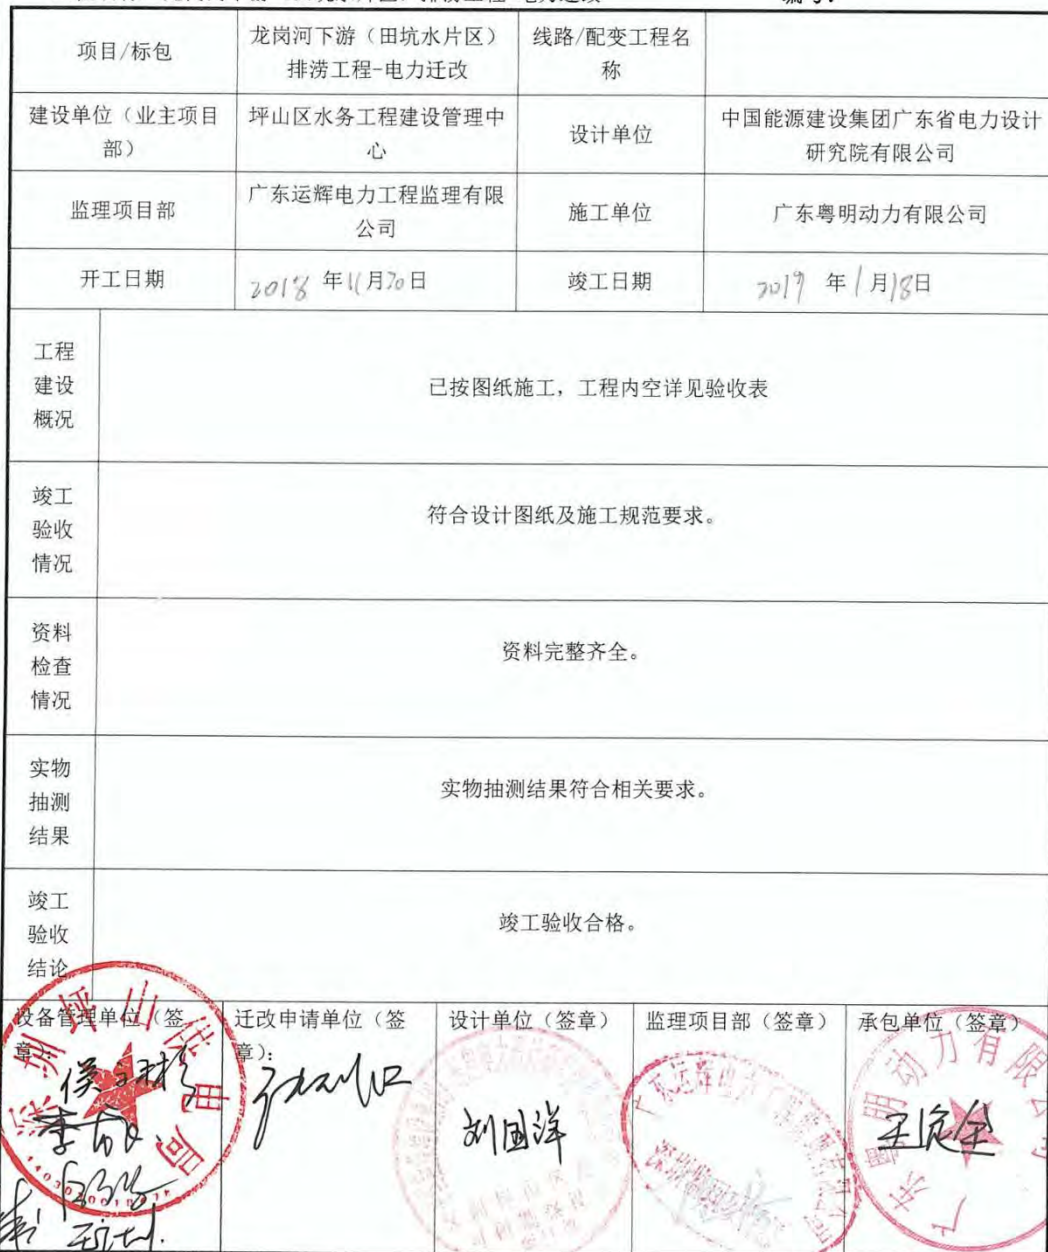 项目/标包
龙岗河下游（田坑水片区）
排涝工程-电力迁改
线路/配变工程名
称
建设单位（业主项目
部）
坪山区水务工程建设管理中
心
设计单位
中国能源建设集团广东省电力设计
研究院有限公司
监理项目部
广东运辉电力工程监理有限
公司
施工单位
广东粤明动力有限公司
开工日期
2018 年11月30日
竣工日期
2019 年1月18日
工程
建设
概况
已按图纸施工，工程内空详见验收表
竣工
验收
情况
符合设计图纸及施工规范要求。
资料
检查
情况
资料完整齐全。
实物
抽测
结果
实物抽测结果符合相关要求。
竣工
验收
结论
竣工验收合格。
设备管理单位（签
章）：
迁改申请单位（签
章）：
设计单位（签章）
监理项目部（签章）
承包单位（签章）
深圳坪山供电局
刘国洋
广东粤明动力有限公司